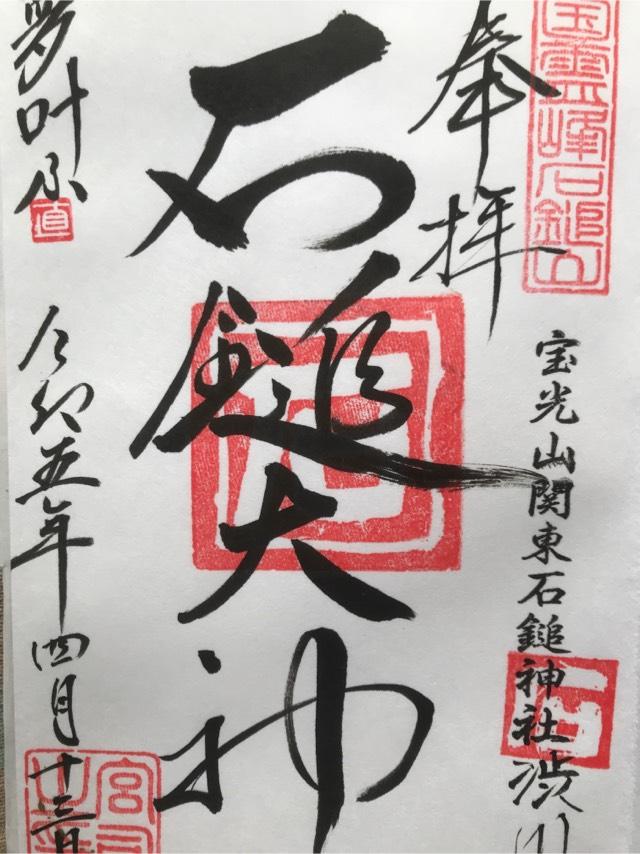 奉拝
宝光山関東石鎚神社渋川
石鎚大神
夢叶ふ
令和五年四月十三日
霊峰石鎚山
直
石